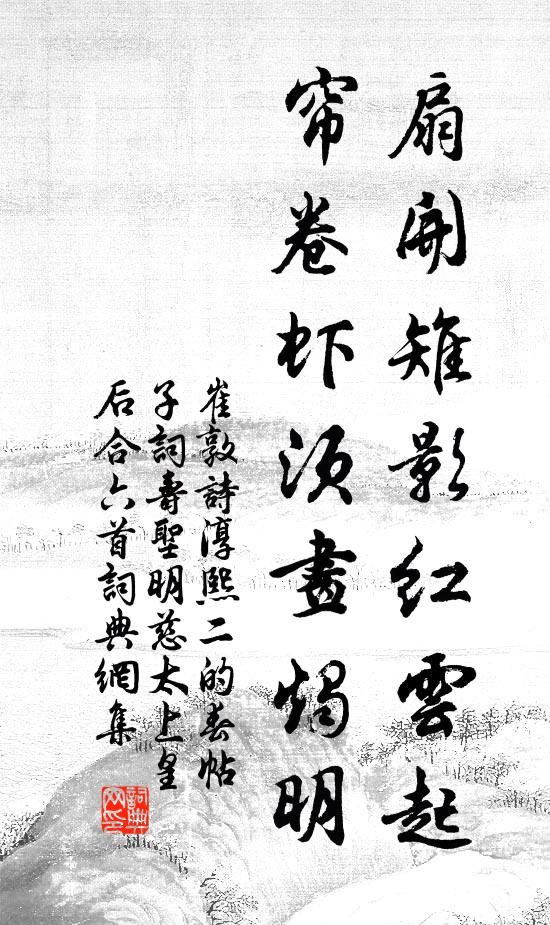 扇開雉影紅雲起
帘卷虾须晝燭明
崔敦詩淳熙二的春帖
子詞壽聖明慈太上皇
后合六首詞典網集